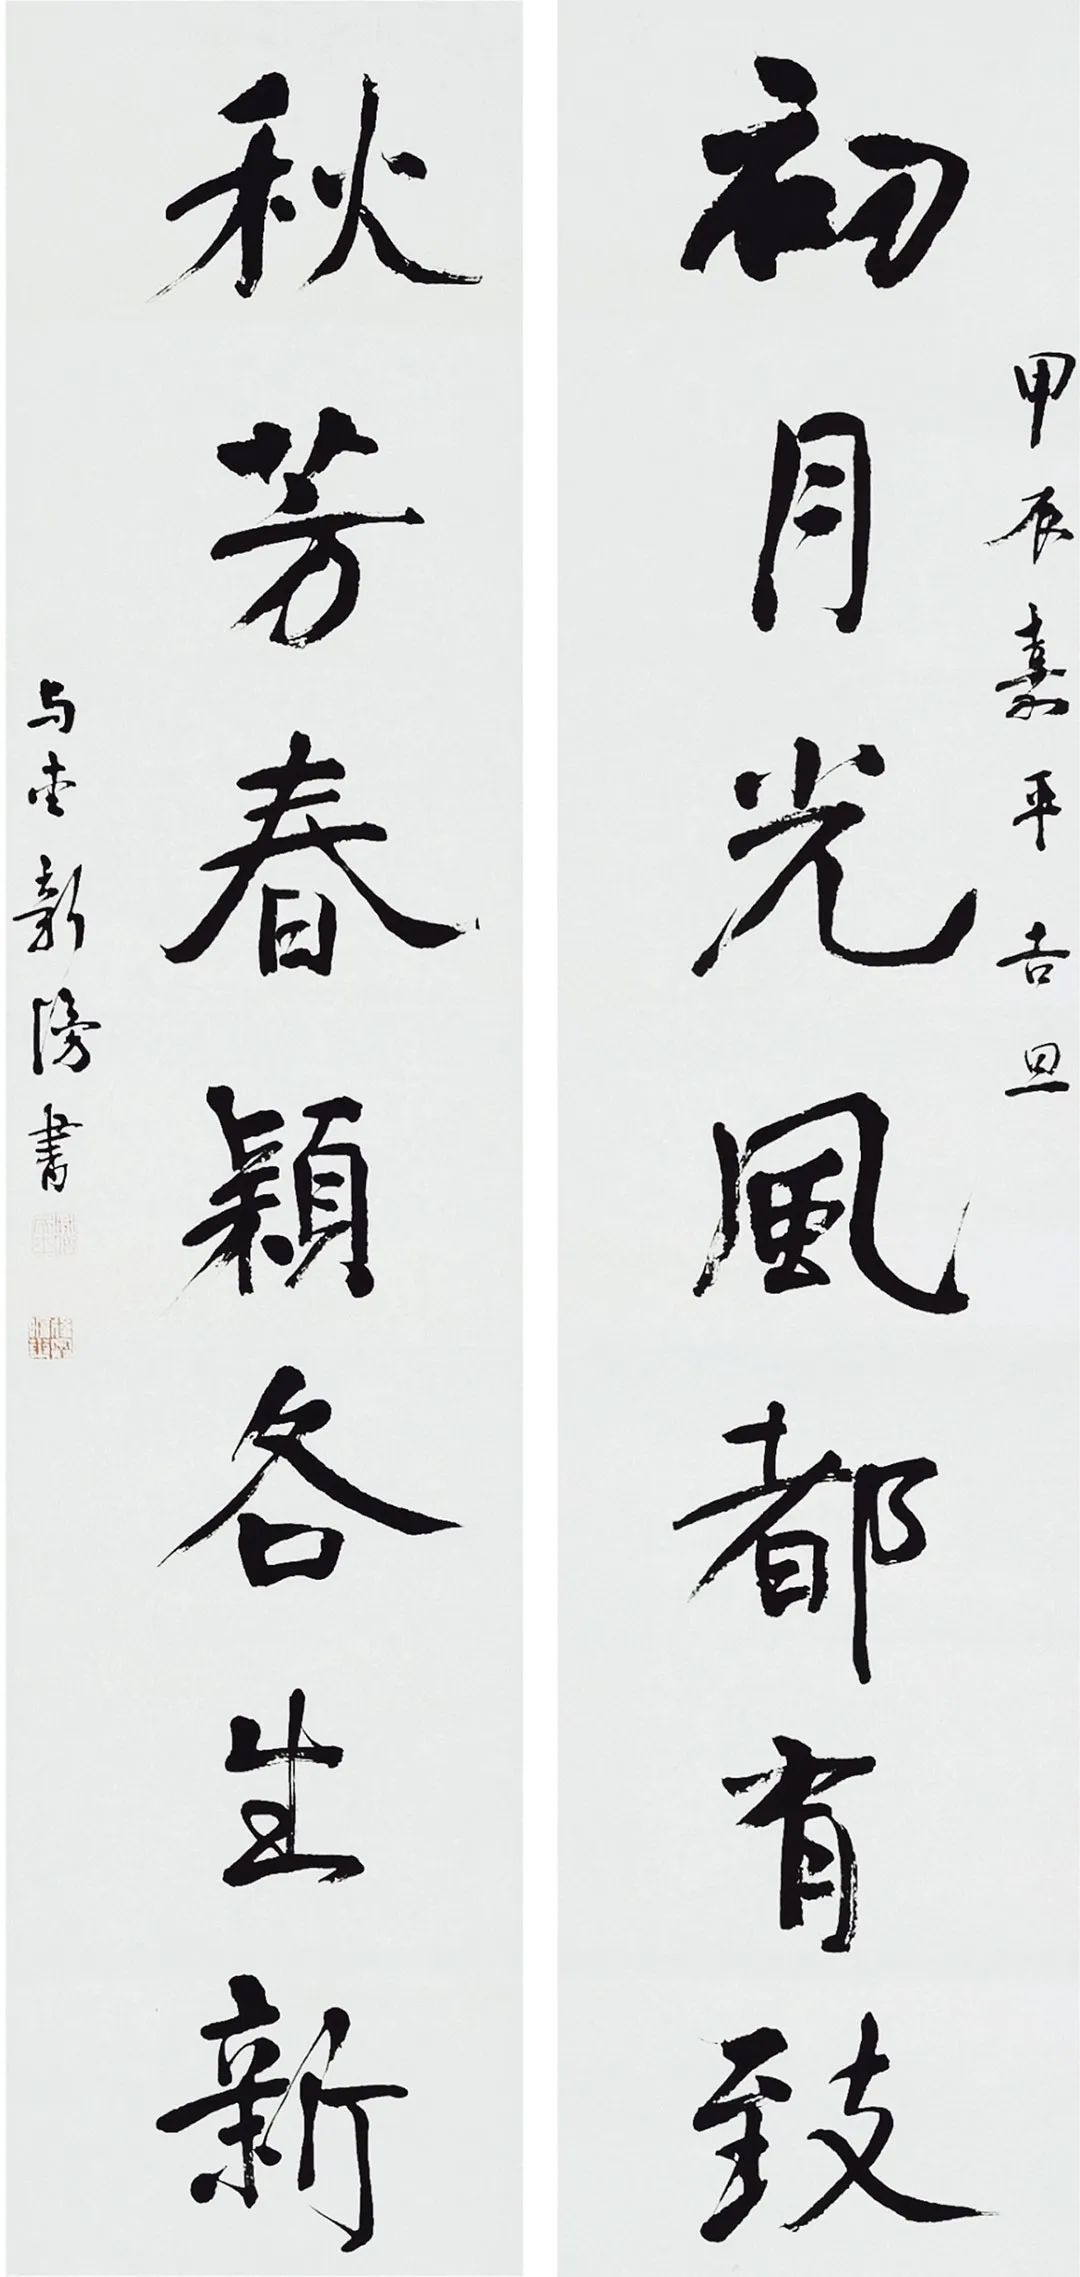 初月光風都有致
甲辰嘉平吉旦
秋芳春穎各生新
与堂新陽書